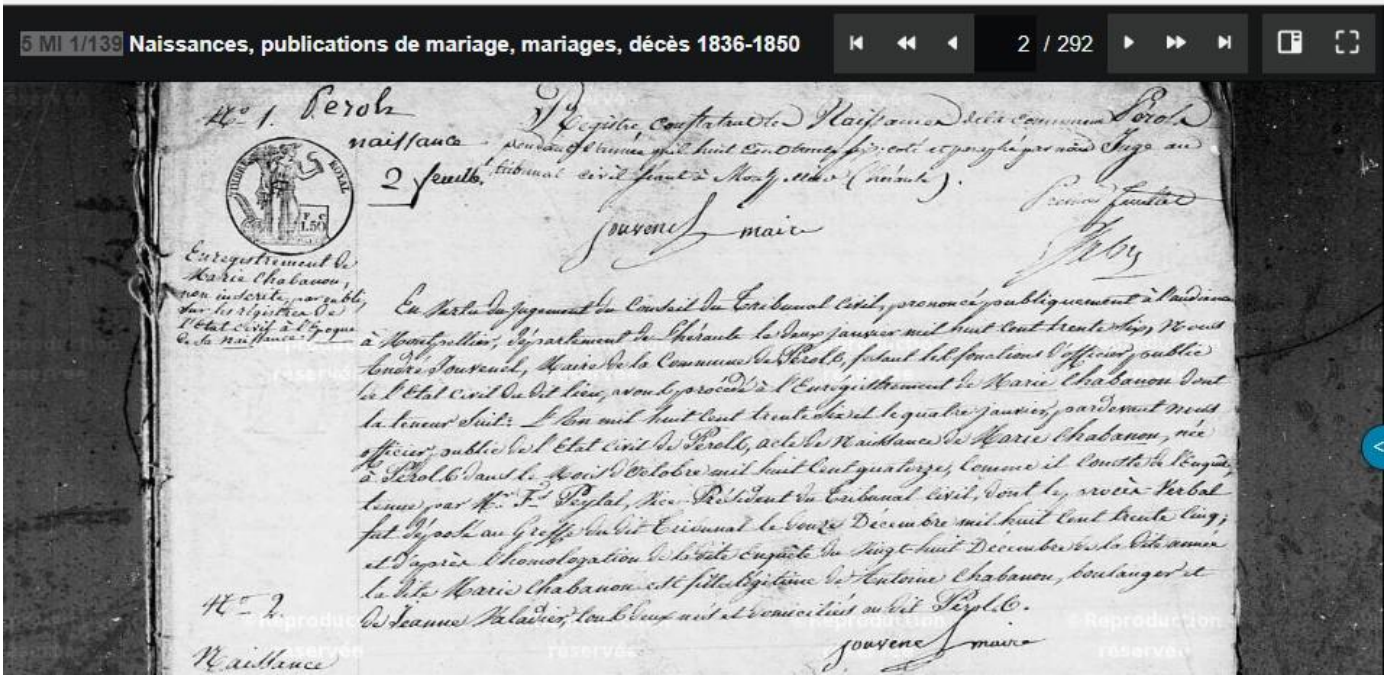 5 MI 1/139 Naissances, publications de mariage, mariages, décès 1836-1850
2 / 292
N° 1. Perols
naissance
2 feuillets
TIMBRE ROYAL
1.50
Registre constatant les Naissances de la commune Pérols
pendant l'année mil huit cent trente six, coté et paraphé par nous Juge au
tribunal civil séant à Montpellier (hérault).
Premier feuillet
Jouvenel maire
Enregistrement de
Marie Chabanon,
non inscrite, par oubli,
sur les régistres de
l'Etat civil à l'époque
de sa naissance
En Vertu du jugement du Conseil du Tribunal Civil, prononcé publiquement à l'audience
à Montpellier, département de l'hérault le deux janvier mil huit cent trente six, Nous
André Jouvenel, Maire de la Commune de Pérols, fesant les fonctions d'officier public
de l'Etat Civil du dit lieu, avons procédé à l'Enregistrement de Marie Chabanon dont
la teneur suit: L'An mil huit Cent trente six et le quatre janvier, pardevant nous
officier public de l'Etat Civil de Pérols, acte de naissance de Marie Chabanon, née
à Pérols dans le Mois d'Octobre mil huit Cent quatorze, Comme il Conste de l'Enquête
tenue par Mr. Peytal, Vice-Président du Tribunal Civil, dont le procès Verbal
fut déposé au Greffe du dit Tribunal le Décembre mil huit Cent trente Cinq;
et d'après l'homologation de la dite Enquête du Vingt-huit Décembre de la dite année
la dite Marie Chabanon est fille légitime de Antoine Chabanon, boulanger et
de Jeanne Valadier, tous deux nés et domiciliés au dit Pérols.
Jouvenel maire
N° 2
Naissance
© Reproduction
réservée